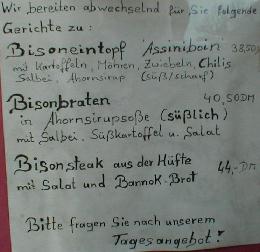 Wir bereiten abwechselnd für Sie folgende
Gerichte zu:
Bisoneintopf Assiniboin 38,50
mit Kartoffeln, Möhren, Zwiebeln, Chilis
Salbei, Ahornsirup (süß/scharf)
Bisonbraten 40,50DM
in Ahornsirupsoße (süßlich)
mit Salbei, Süßkartoffel u. Salat
Bisonsteak aus der Hüfte 44,-DM
mit Salat und Bannok-Brot
Bitte fragen Sie nach unserem
Tagesangebot!